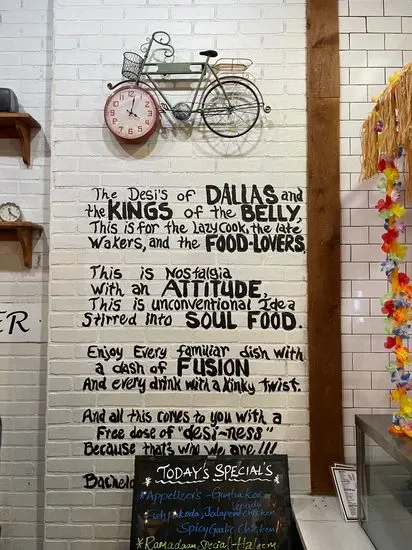 The Desi's of DALLAS and
the KINGS of the BELLY,
This is for the Lazy Cook, the late
Wakers, and the FOOD-LOVERS.
This is Nostalgia
With an ATTITUDE,
This is unconventional Idea
Stirred into SOUL FOOD.
Enjoy Every familiar dish with
a dash of FUSION
And every drink with a Kinky twist.
ER
And all this comes to you with a
Free dose of "desi-ness"
Because that's who we are!!!
Bachelo
TODAY'S SPECIAL'S
*Appetizers - Guntur Kodi
Fish Pakoda, Jalapeno Chicken
Spicy Garlic Chicken
*Ramadaan Special - Haleem